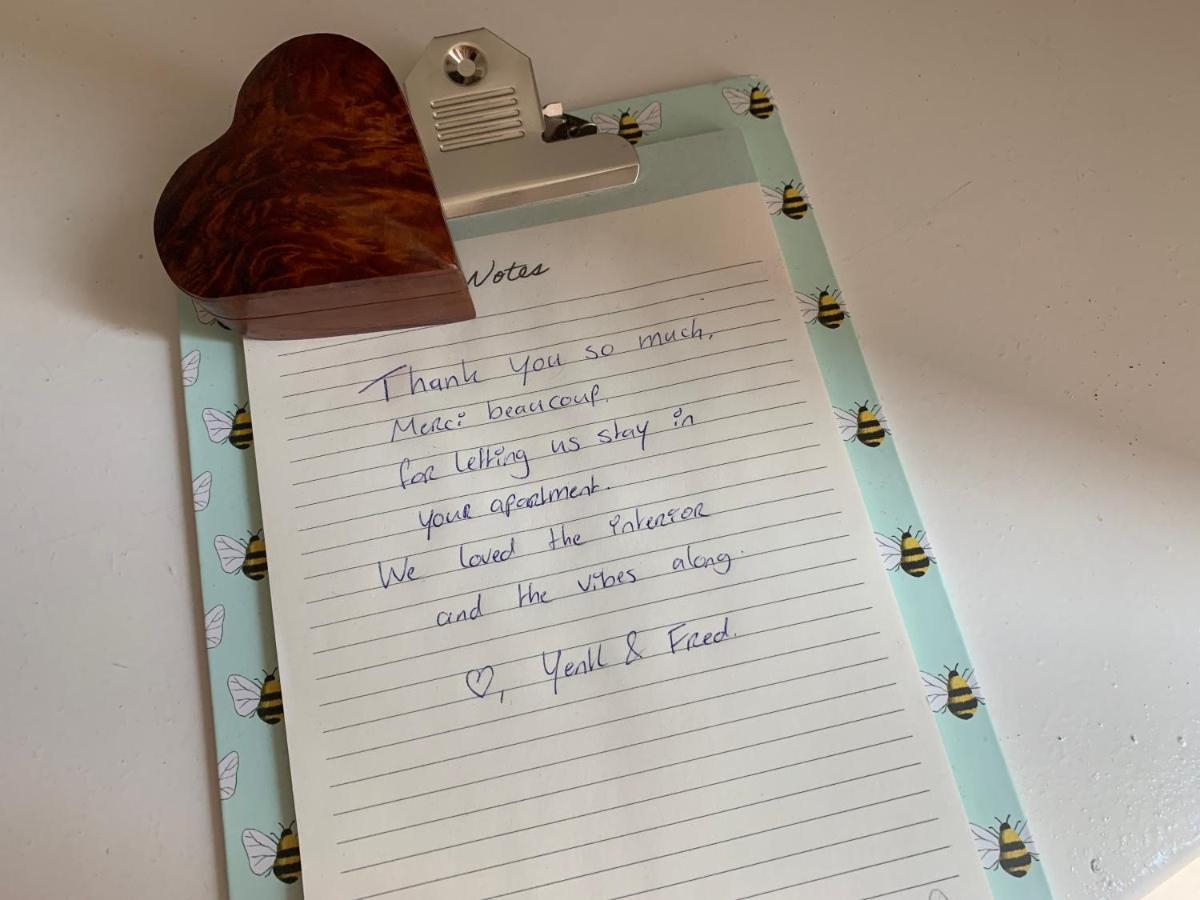 Notes
Thank you so much,
Merci beaucoup.
for letting us stay in
your apartment.
We loved the interior
and the vibes along.
♡, & Fred.